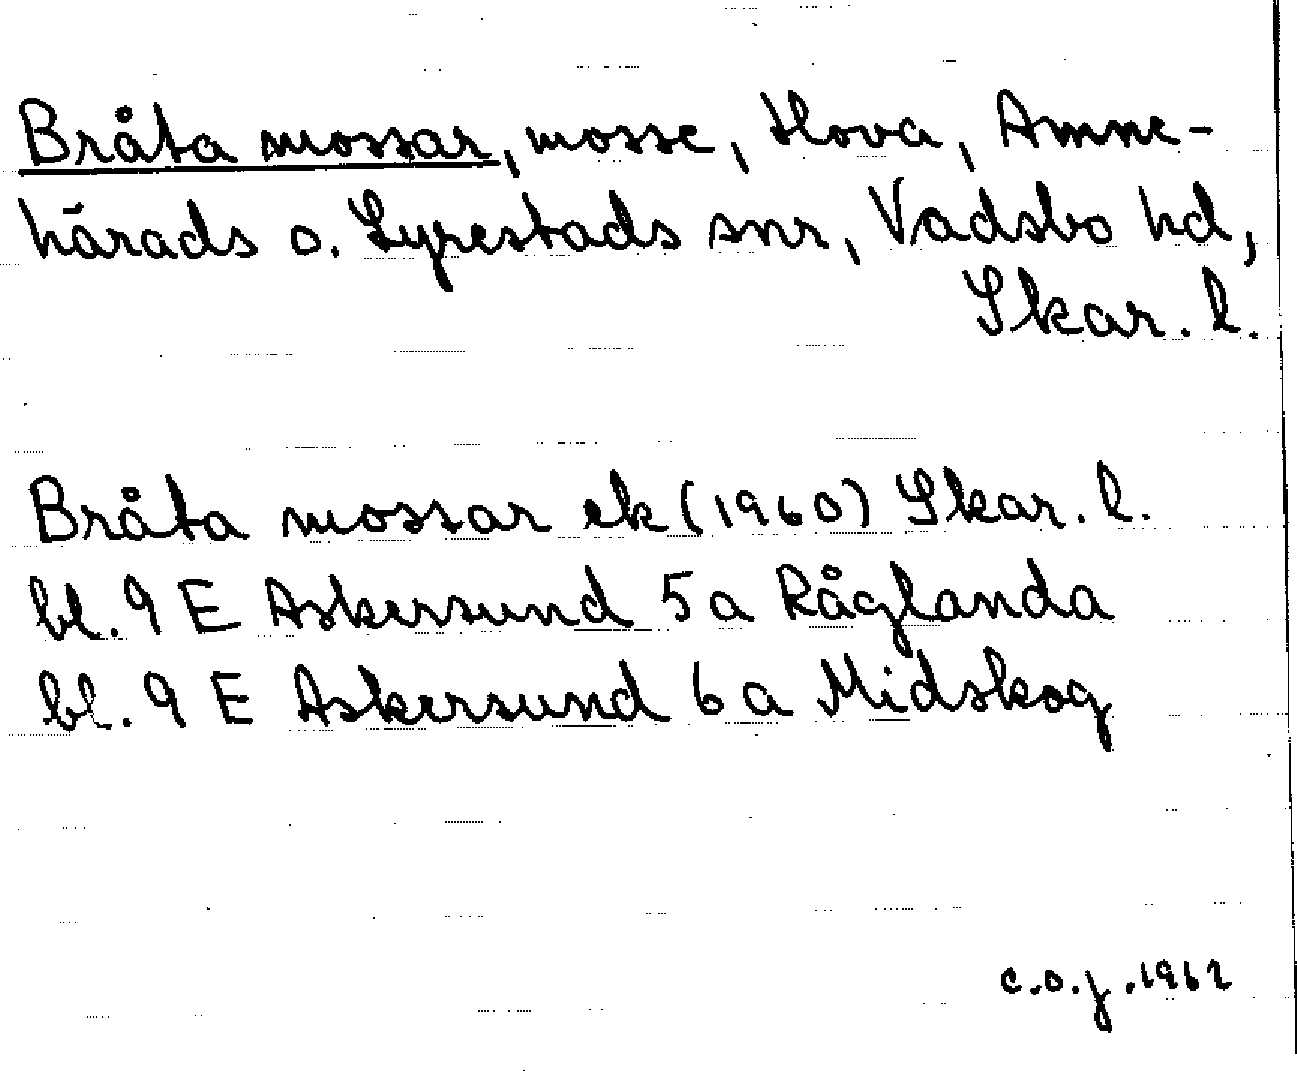 Bråta mossar, mosse, Hova, Amne-
härads o. Lyrestads snr, Vadsbo hd,
Skar. l.
Bråta mossar ek (1960) Skar. l.
bl. 9 E Askersund 5 a Råglanda
bl. 9 E Askersund 6 a Midskog
c.o.j. 1962